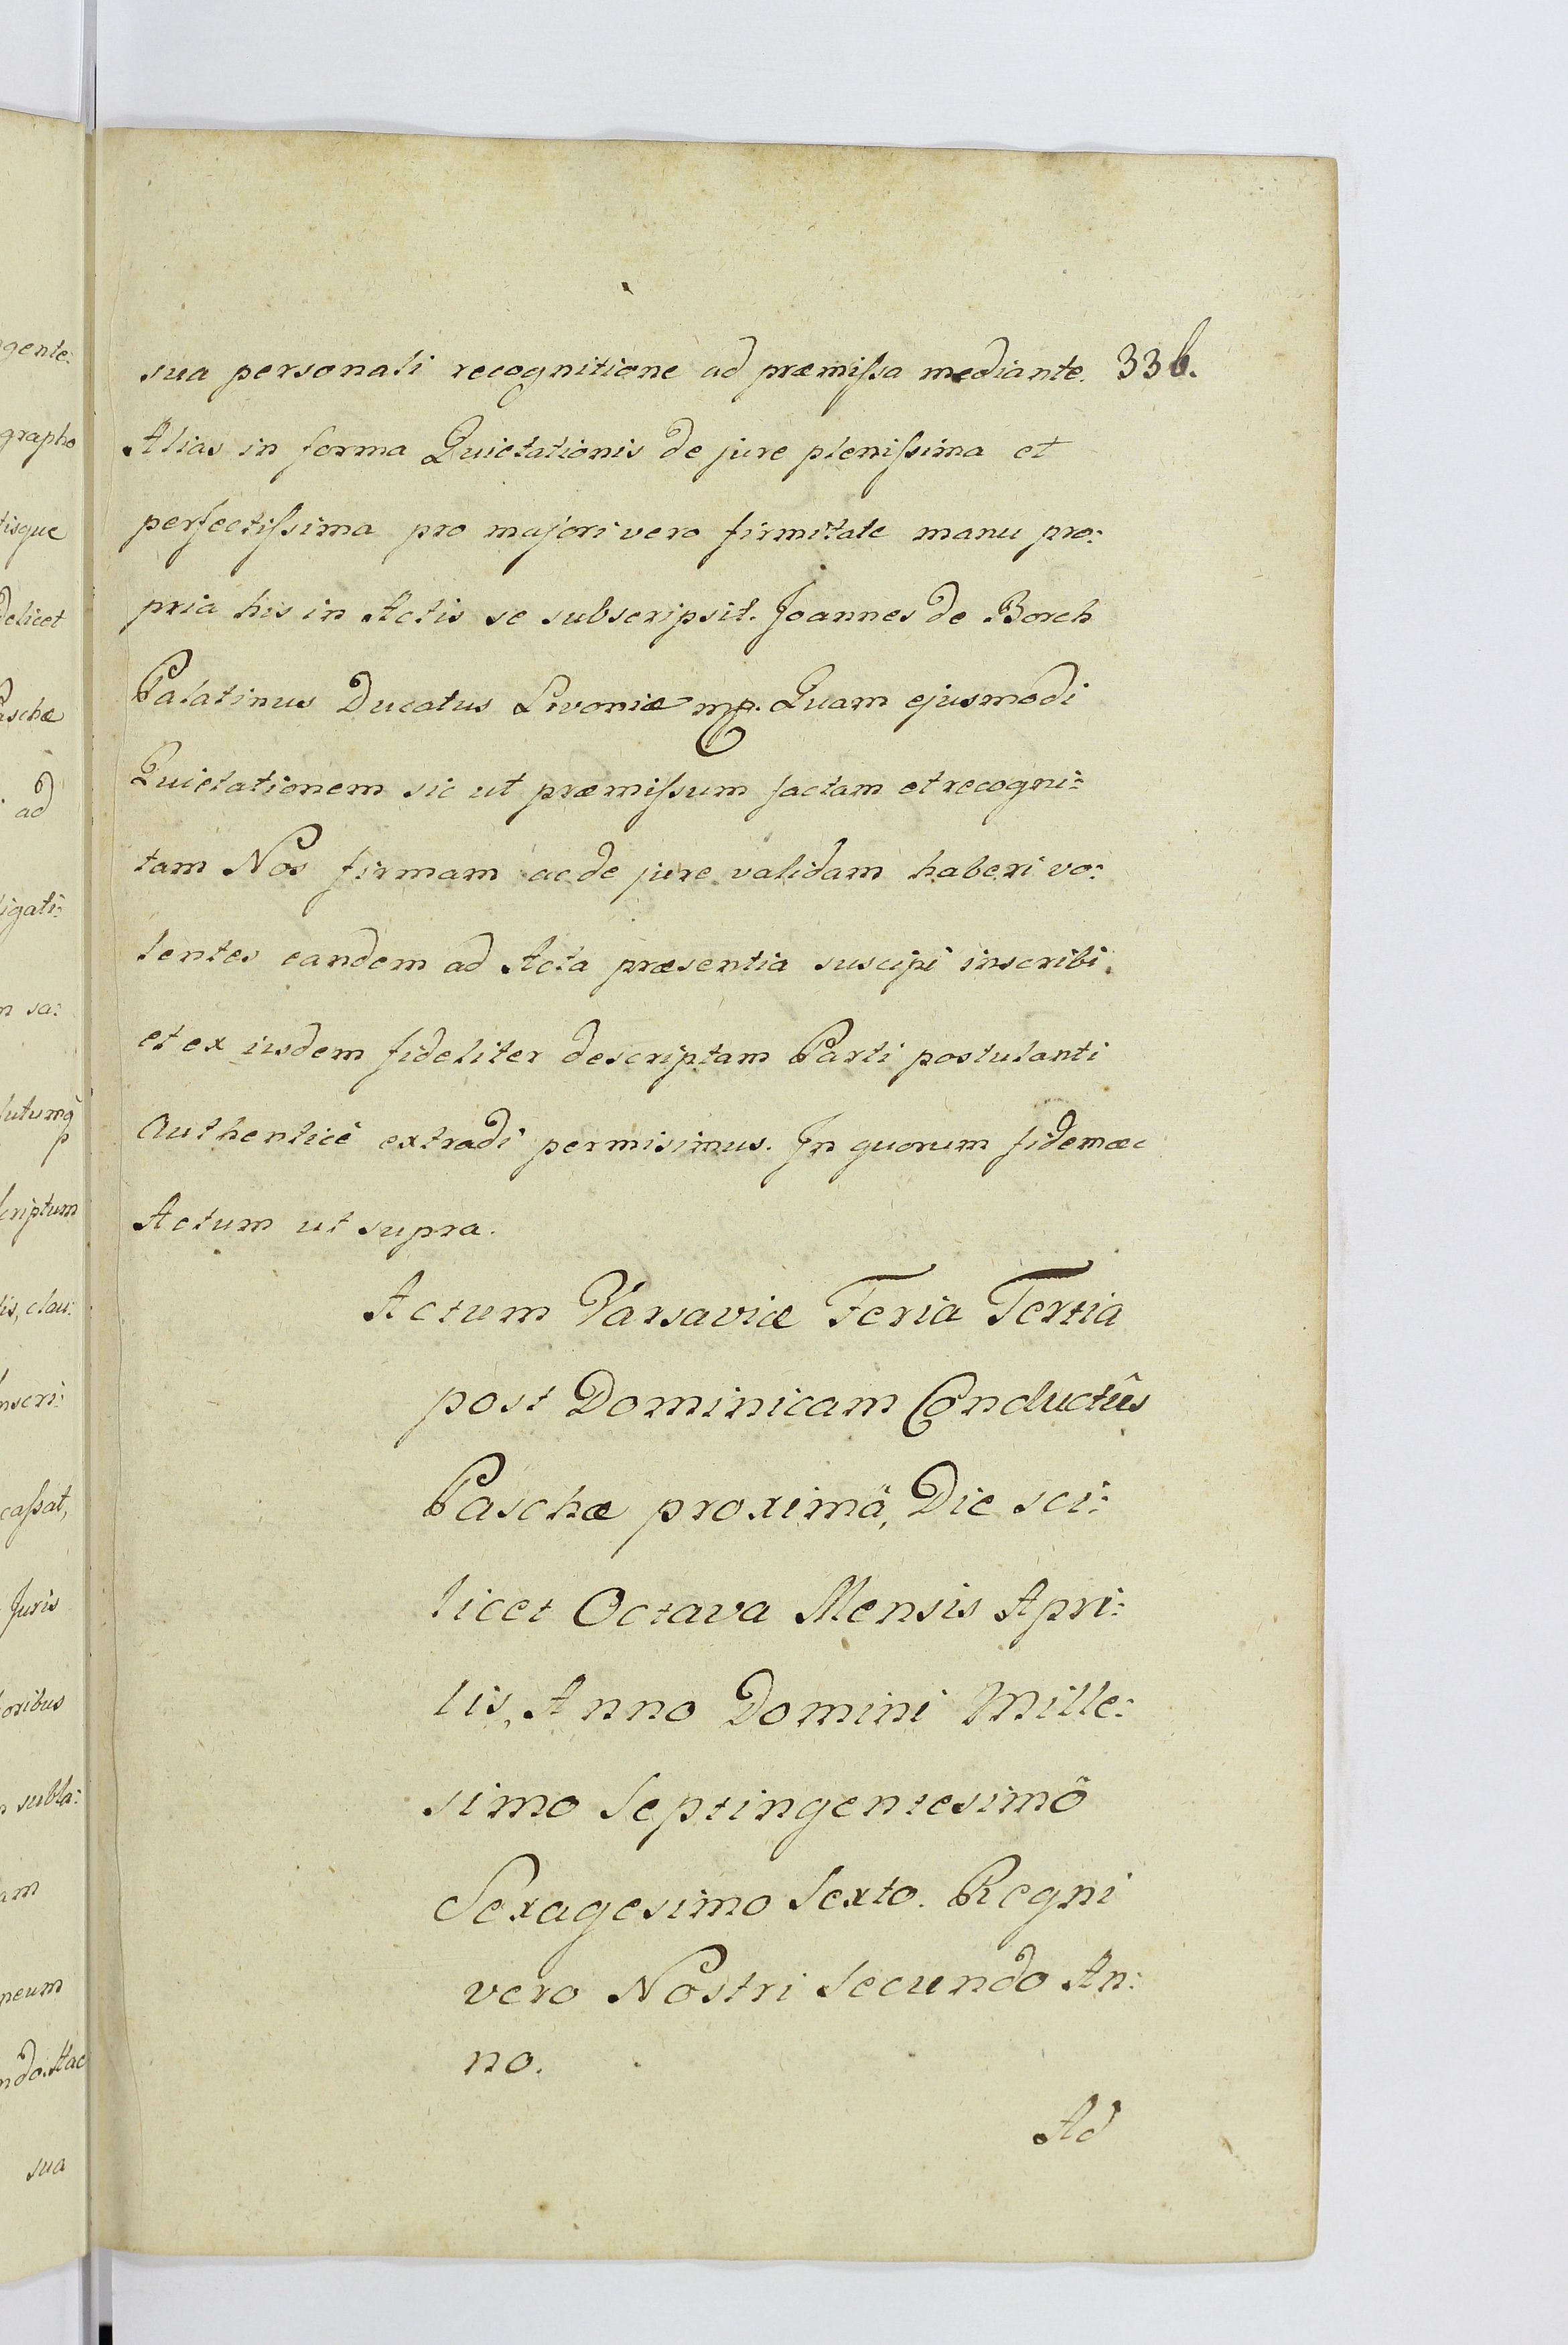 sua personali recognitione ad præmiſsa mediante. 33b.
Alias in forma Quietationis de jure pleniſsima et
perfectiſsima pro majori vero firmitate manu pro:
pria his in Actis se subscripsit. Joannes de Borch
Palatinus Ducatus Livoniæ mp. Quam ejusmodi
Quietationem sic ut præmiſsum factam et recogni:
tam Nos firmam ac de jure validam haberi vo:
lentes eandem ad Acta præsentia suscipi inscribi
et ex iisdem fideliter descriptam Parti postulanti
Authenticè extradi permisimus. In quorum fidem ac
Actum ut supra.
Actum Varsaviæ Feria Tertia
post Dominicam Conductûs
Paschæ proximâ, Die sci:
licet Octava Mensis Apri:
lis, Anno Domini Mille:
simo Septingentesimô
Sexagesimo Sexto. Regni
vero Nostri Secundo An:
no.
Ad
gente:
grapho
tisque
delicet
aschæ
ad
igati:
sa:
criptum
is, clau:
nscri:
caſsat,
Juris
oribus
subla:
am
neum
ndo. Hac
sua